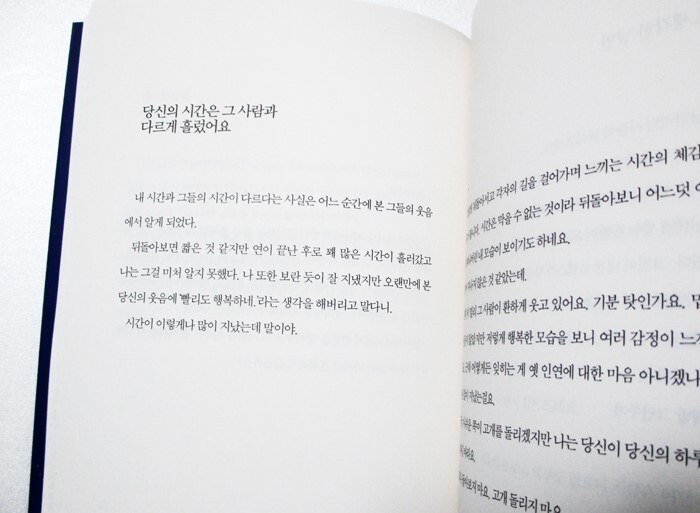 당신의 시간은 그 사람과
다르게 흘렀어요
내 시간과 그들의 시간이 다르다는 사실은 어느 순간에 본 그들의 웃음
에서 알게 되었다.
뒤돌아보면 짧은 것 같지만 연이 끝난 후로 꽤 많은 시간이 흘러갔고
나는 그걸 미처 알지 못했다. 나 또한 보란 듯이 잘 지냈지만 오랜만에 본
당신의 웃음에 '빨리도 행복하네.'라는 생각을 해버리고 말다니.
시간이 이렇게나 많이 지났는데 말이야.
각자의 길을 걸어가며 느끼는 시간의 체감
시간은 막을 수 없는 것이라 뒤돌아보니 어느덧
모습이 보이기도 하네요.
않은 것 같았는데.
그 사람이 환하게 웃고 있어요. 기분 탓인가요.
저렇게 행복한 모습을 보니 여러 감정이
어떻게든 잊히는 게 옛 인연에 대한 마음 아니겠나
지났는걸요.
쪽이 고개를 돌리겠지만 나는 당신이 당신의 하루
마요. 고개 돌리지 마요.